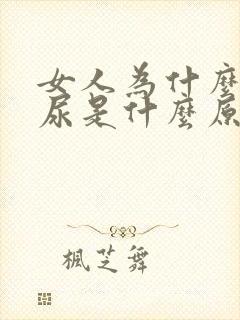 女人為什麼
尿是什麼原
楓芝舞